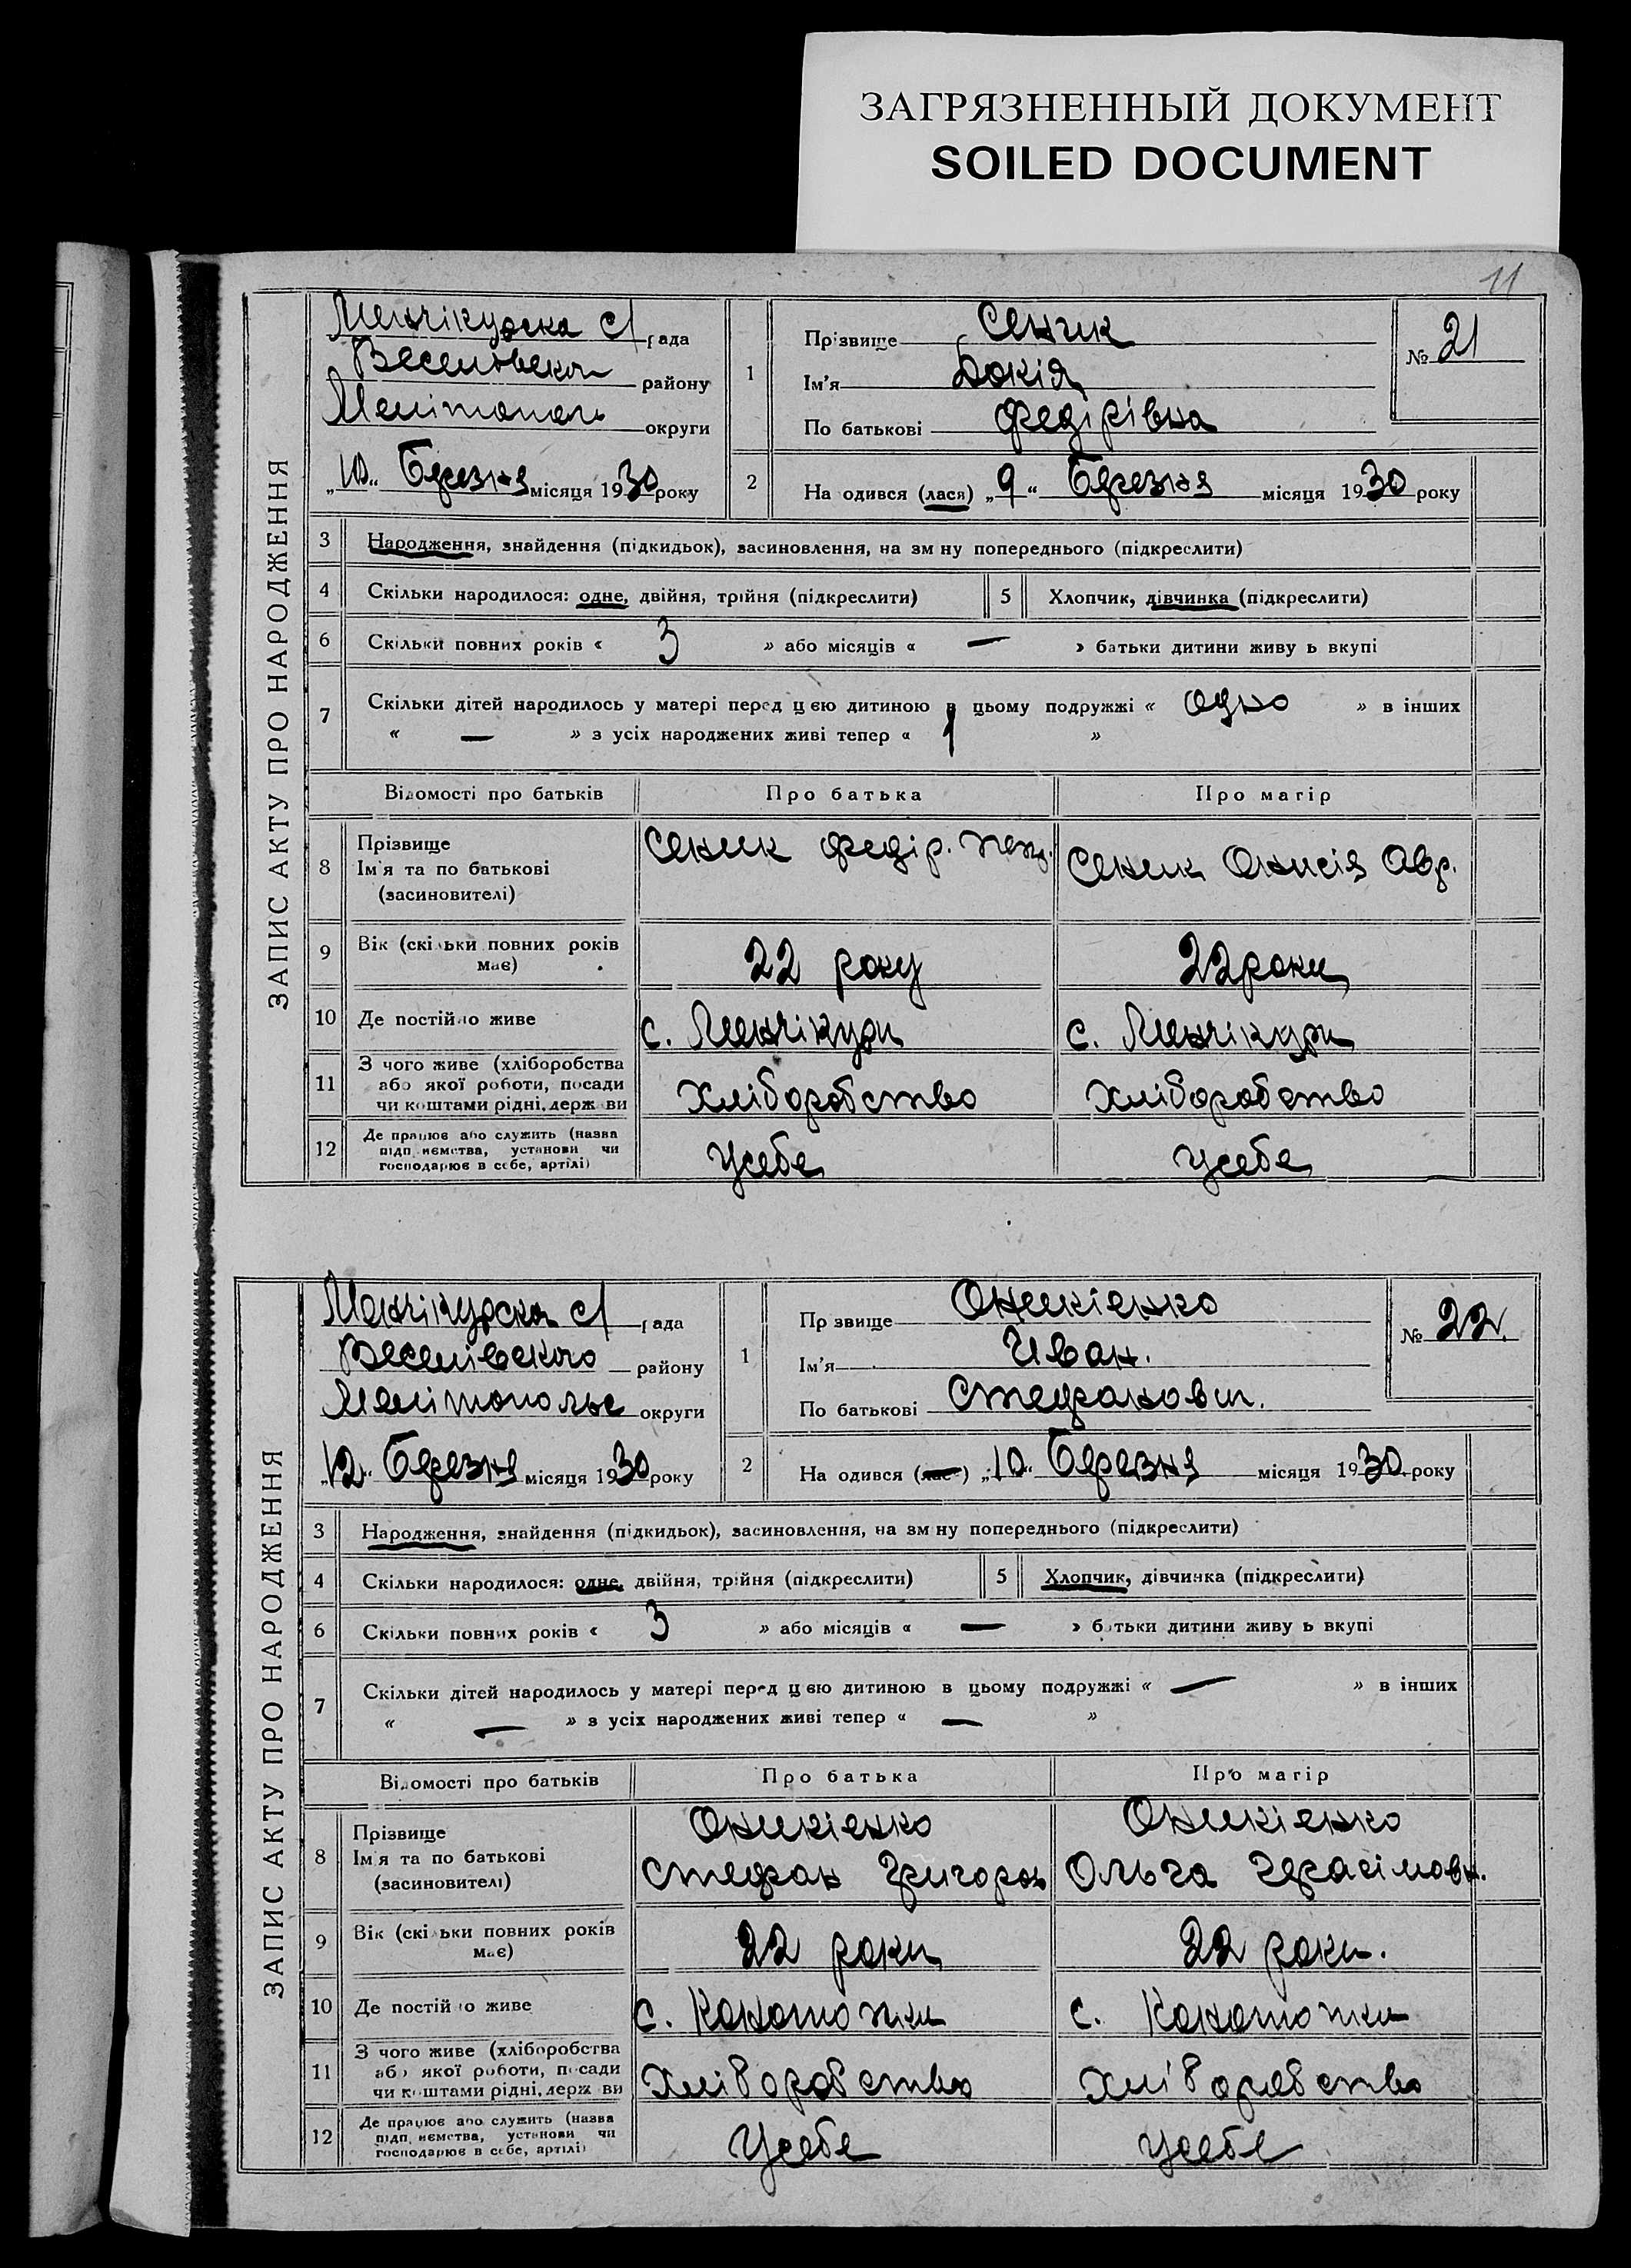 ЗАГРЯЗНЕННЫЙ ДОКУМЕНТ
SOILED DOCUMENT
11
ЗАПИС АКТУ ПРО НАРОДЖЕННЯ
Менчікурска с/рада
Веселовського району
Мелітополь округи
„10“ Березня місяця 1930 року
1
Прізвище Сеник
Ім'я Докія
По батькові Федірівна
№ 21
2
На одився (лася) „9“ Березня місяця 1930 року
3 Народження, знайдення (підкидьок), засиновлення, на зм ну попереднього (підкреслити)
4 Скільки народилося: одне, двійня, трійня (підкреслити)
5 Хлопчик, дівчинка (підкреслити)
6 Скільки повних років « 3 » або місяців « — » батьки дитини живу ь вкупі
7 Скільки дітей народилось у матері перед цією дитиною в цьому подружжі « одно » в інших
« — » з усіх народжених живі тепер « 1 »
Відомості про батьків Про батька Про матір
8 Прізвище
Ім'я та по батькові
(засновителі)
Сеник Федір.
Сеник Онисія Авр.
9 Вік (скільки повних років має)
22 року
22 роки
10 Де постійно живе
с. Менчікури
с. Менчікури
11 З чого живе (хліборобства
або якої роботи, посади
чи коштами рідні, держ ви
Хліборобство
Хліборобство
12 Де працює або служить (назва
підп иємства, установи чи
господарює в себе, артілі)
Усебе
Усебе
ЗАПИС АКТУ ПРО НАРОДЖЕННЯ
Менчікурска с/рада
Веселівского району
Мелітопольс округи
„12“ Березня місяця 1930 року
1
Пр звище Оникієнко
Ім'я Иван.
По батькові Стефанович.
№ 22.
2
На одився (лася) „10“ Березня місяця 1930 року
3 Народження, знайдення (підкидьок), засиновлення, на зм ну попереднього (підкреслити)
4 Скільки народилося: одне, двійня, трійня (підкреслити)
5 Хлопчик, дівчинка (підкреслити)
6 Скільки повних років « 3 » або місяців « — » батьки дитини живу ь вкупі
7 Скільки дітей народилось у матері перед цією дитиною в цьому подружжі « — » в інших
« — » з усіх народжених живі тепер « — »
Відомості про батьків Про батька Про матір
8 Прізвище
Ім'я та по батькові
(засиновителі)
Оникієнко
Стефан Григоров
Оникієнко
Ольга Герасімовн.
9 Вік (скі ьки повних років має)
22 роки
22 роки.
10 Де постійно живе
с.
с.
11 З чого живе (хліборобства
або якої роботи, посади
чи коштами рідні, держ ви
Хліборобство
Хліборобство
12 Де працює або служить (назва
підп иємства, установи чи
господарює в себе, артілі)
Усебе
Усебе